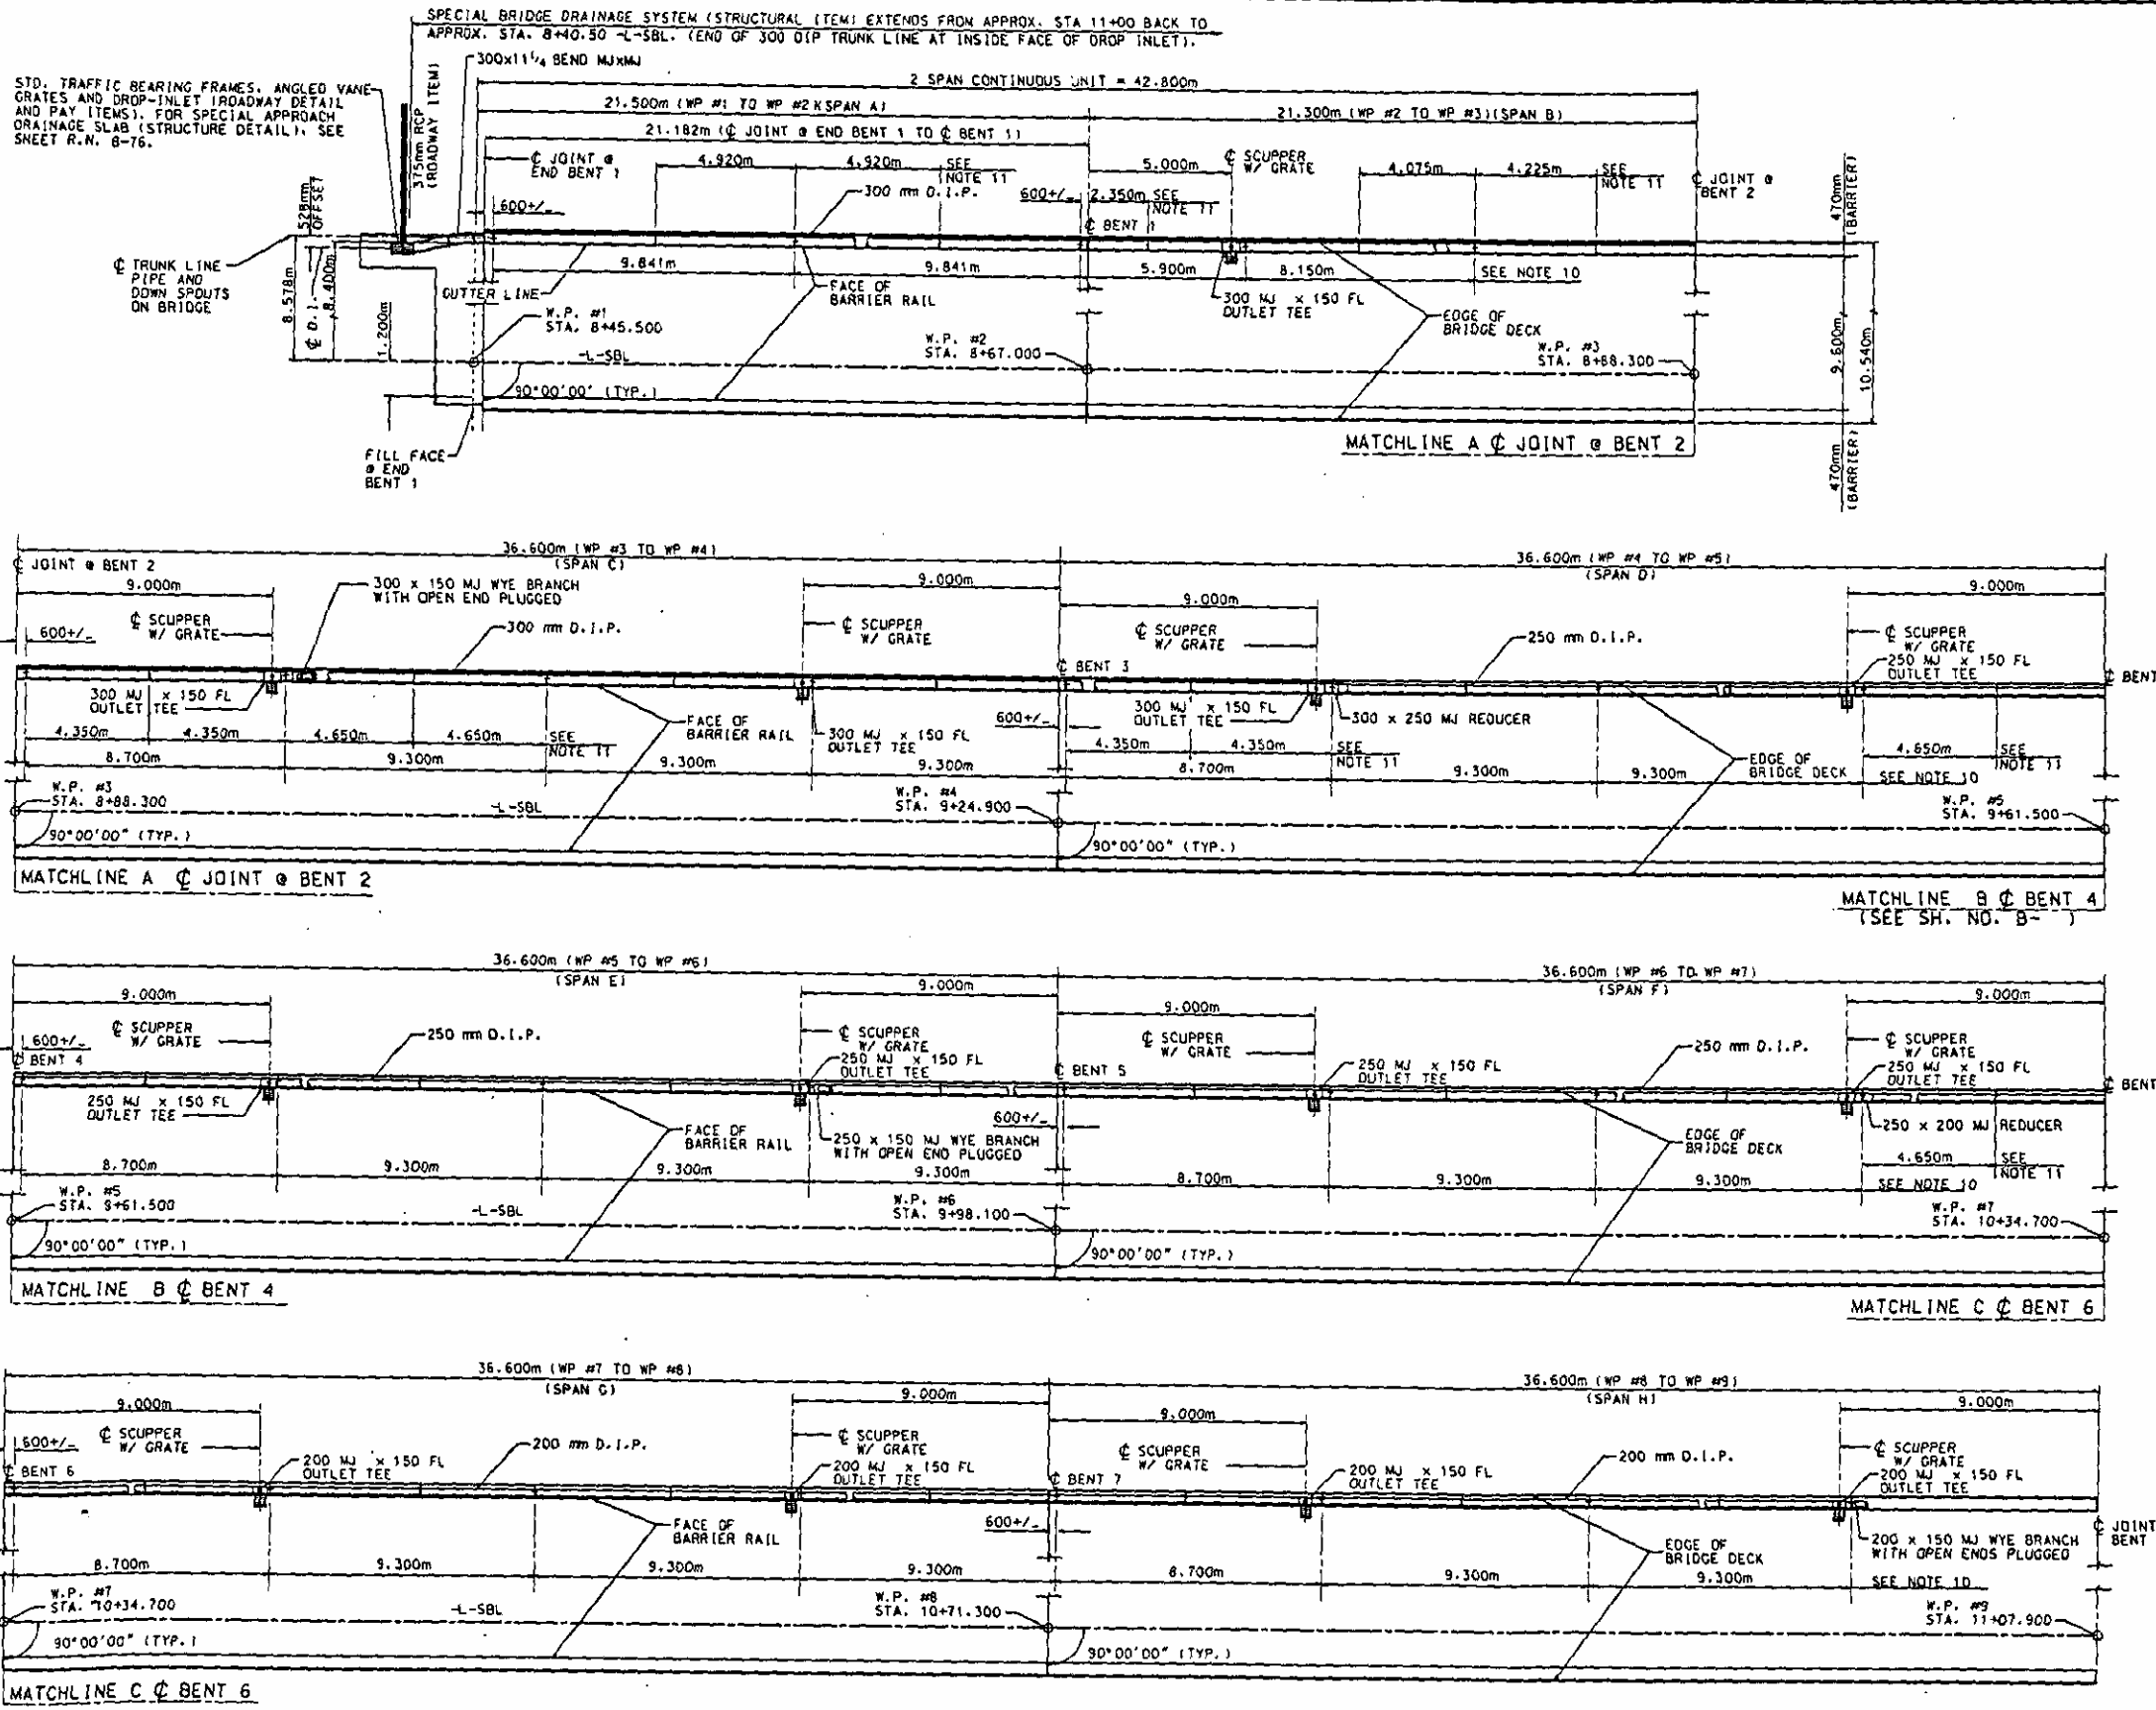 SPECIAL BRIDGE DRAINAGE SYSTEM (STRUCTURAL ITEM) EXTENDS FROM APPROX. STA 11+00 BACK TO
APPROX. STA. 8+40.50 -L-SBL. (END OF 300 DIP TRUNK LINE AT INSIDE FACE OF DROP INLET).
300x11 1/4 BEND MJxMJ
STD. TRAFFIC BEARING FRAMES, ANGLED VANE
GRATES AND DROP-INLET (ROADWAY DETAIL
AND PAY ITEMS). FOR SPECIAL APPROACH
DRAINAGE SLAB (STRUCTURE DETAIL), SEE
SHEET R.N. B-76.
375mm RCP
(ROADWAY ITEM)
2 SPAN CONTINUOUS UNIT = 42.800m
21.500m (WP #1 TO WP #2)(SPAN A)
21.300m (WP #2 TO WP #3)(SPAN B)
21.182m (℄ JOINT @ END BENT 1 TO ℄ BENT 1)
℄ JOINT @
END BENT 1
4.920m
4.920m
SEE
NOTE 11
300 mm D.I.P.
600+/-
600+/-
2.350m
SEE
NOTE 11
5.000m
℄ SCUPPER
W/ GRATE
4.075m
4.225m
SEE
NOTE 11
℄ JOINT @
BENT 2
470mm
(BARRIER)
528mm
OFFSET
℄ BENT 1
℄ TRUNK LINE
PIPE AND
DOWN SPOUTS
ON BRIDGE
8.578m
℄ D.I.
8.400m
1.200m
GUTTER LINE
9.841m
9.841m
FACE OF
BARRIER RAIL
5.900m
8.150m
SEE NOTE 10
300 MJ x 150 FL
OUTLET TEE
EDGE OF
BRIDGE DECK
W.P. #1
STA. 8+45.500
W.P. #2
STA. 8+67.000
W.P. #3
STA. 8+88.300
-L-SBL
90°00'00" (TYP.)
9.600m
10.540m
470mm
(BARRIER)
FILL FACE
@ END
BENT 1
MATCHLINE A ℄ JOINT @ BENT 2
36.600m (WP #3 TO WP #4)
(SPAN C)
36.600m (WP #4 TO WP #5)
(SPAN D)
℄ JOINT @ BENT 2
9.000m
300 x 150 MJ WYE BRANCH
WITH OPEN END PLUGGED
9.000m
9.000m
9.000m
600+/-
℄ SCUPPER
W/ GRATE
300 mm D.I.P.
℄ SCUPPER
W/ GRATE
℄ SCUPPER
W/ GRATE
250 mm D.I.P.
℄ SCUPPER
W/ GRATE
250 MJ x 150 FL
OUTLET TEE
℄ BENT 3
℄ BENT
300 MJ x 150 FL
OUTLET TEE
FACE OF
BARRIER RAIL
300 MJ x 150 FL
OUTLET TEE
600+/-
300 MJ x 150 FL
OUTLET TEE
300 x 250 MJ REDUCER
4.350m
4.350m
4.650m
4.650m
SEE
NOTE 11
4.350m
4.350m
SEE
NOTE 11
EDGE OF
BRIDGE DECK
4.650m
SEE
NOTE 11
8.700m
9.300m
9.300m
9.300m
8.700m
9.300m
9.300m
SEE NOTE 10
W.P. #3
STA. 8+88.300
-L-SBL
W.P. #4
STA. 9+24.900
W.P. #5
STA. 9+61.500
90°00'00" (TYP.)
90°00'00" (TYP.)
MATCHLINE A ℄ JOINT @ BENT 2
MATCHLINE B ℄ BENT 4
(SEE SH. NO. B- )
36.600m (WP #5 TO WP #6)
(SPAN E)
36.600m (WP #6 TO WP #7)
(SPAN F)
9.000m
9.000m
9.000m
9.000m
600+/-
℄ SCUPPER
W/ GRATE
250 mm D.I.P.
℄ SCUPPER
W/ GRATE
250 MJ x 150 FL
OUTLET TEE
℄ SCUPPER
W/ GRATE
250 MJ x 150 FL
OUTLET TEE
250 mm D.I.P.
℄ SCUPPER
W/ GRATE
250 MJ x 150 FL
OUTLET TEE
℄ BENT 4
℄ BENT 5
℄ BENT
250 MJ x 150 FL
OUTLET TEE
FACE OF
BARRIER RAIL
600+/-
250 x 150 MJ WYE BRANCH
WITH OPEN END PLUGGED
EDGE OF
BRIDGE DECK
250 x 200 MJ REDUCER
4.650m
SEE
NOTE 11
8.700m
9.300m
9.300m
9.300m
8.700m
9.300m
9.300m
SEE NOTE 10
W.P. #5
STA. 9+61.500
-L-SBL
W.P. #6
STA. 9+98.100
W.P. #7
STA. 10+34.700
90°00'00" (TYP.)
90°00'00" (TYP.)
MATCHLINE B ℄ BENT 4
MATCHLINE C ℄ BENT 6
36.600m (WP #7 TO WP #8)
(SPAN G)
36.600m (WP #8 TO WP #9)
(SPAN H)
9.000m
9.000m
9.000m
9.000m
600+/-
℄ SCUPPER
W/ GRATE
200 MJ x 150 FL
OUTLET TEE
200 mm D.I.P.
℄ SCUPPER
W/ GRATE
200 MJ x 150 FL
OUTLET TEE
℄ SCUPPER
W/ GRATE
200 MJ x 150 FL
OUTLET TEE
200 mm D.I.P.
℄ SCUPPER
W/ GRATE
200 MJ x 150 FL
OUTLET TEE
℄ BENT 6
℄ BENT 7
℄ JOINT
BENT
FACE OF
BARRIER RAIL
600+/-
EDGE OF
BRIDGE DECK
200 x 150 MJ WYE BRANCH
WITH OPEN ENDS PLUGGED
8.700m
9.300m
9.300m
9.300m
8.700m
9.300m
9.300m
SEE NOTE 10
W.P. #7
STA. 10+34.700
-L-SBL
W.P. #8
STA. 10+71.300
W.P. #9
STA. 11+07.900
90°00'00" (TYP.)
90°00'00" (TYP.)
MATCHLINE C ℄ BENT 6